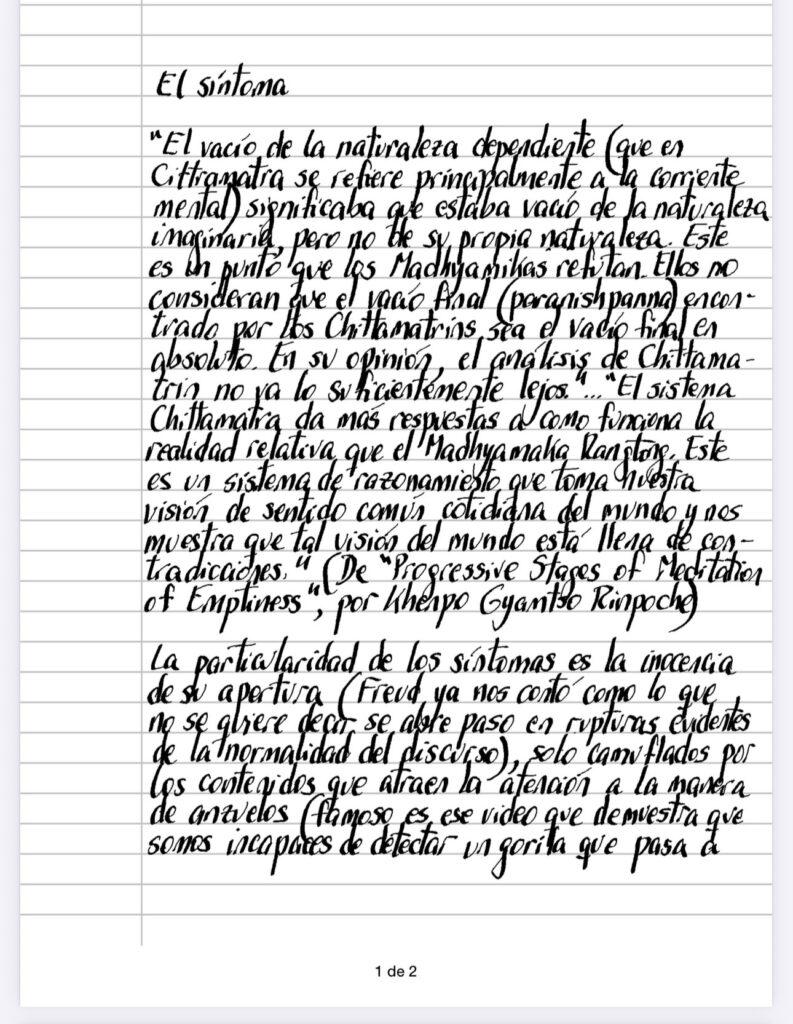 El síntoma
"El vacío de la naturaleza dependiente (que en
Cittramatra se refiere principalmente a la corriente
mental) significaba que estaba vacío de la naturaleza
imaginaria, pero no de su propia naturaleza. Este
es un punto que los Madhyamikas refutan. Ellos no
consideran que el vacío final (paranishpanna) encon-
trado por los Chittamatrins sea el vacío final en
absoluto. En su opinión, el análisis de Chittama-
trin no va lo suficientemente lejos."..."El sistema
Chittamatra da más respuestas a como funciona la
realidad relativa que el Madhyamaka Rangtong. Este
es un sistema de razonamiento que toma nuestra
visión de sentido común cotidiana del mundo y nos
muestra que tal visión del mundo está llena de con-
tradicciones." (De "Progressive Stages of Meditation
of Emptiness", por Khenpo Gyamtso Rinpoche)
La particularidad de los síntomas es la inocencia
de su apertura (Freud ya nos contó como lo que
no se quiere decir se abre paso en rupturas evidentes
de la normalidad del discurso), solo camuflados por
los contenidos que atraen la atención a la manera
de anzuelos (famoso es ese video que demuestra que
somos incapaces de detectar un gorila que pasa a
1 de 2